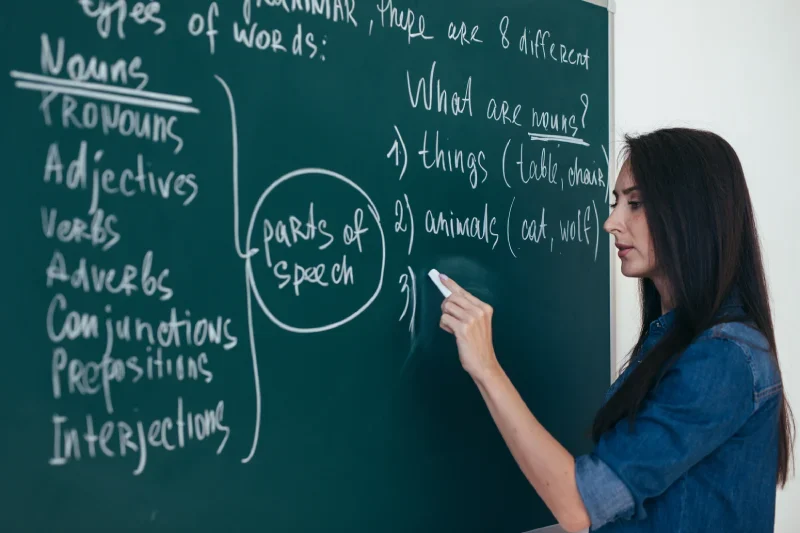 GRAMMAR, there are 8 different
types of words:
Nouns
PRONouns
Adjectives
Verbs
Adverbs
Conjunctions
Prepositions
Interjections
parts of
speech
What are nouns?
1) things (table, chair)
2) animals (cat, wolf)
3)